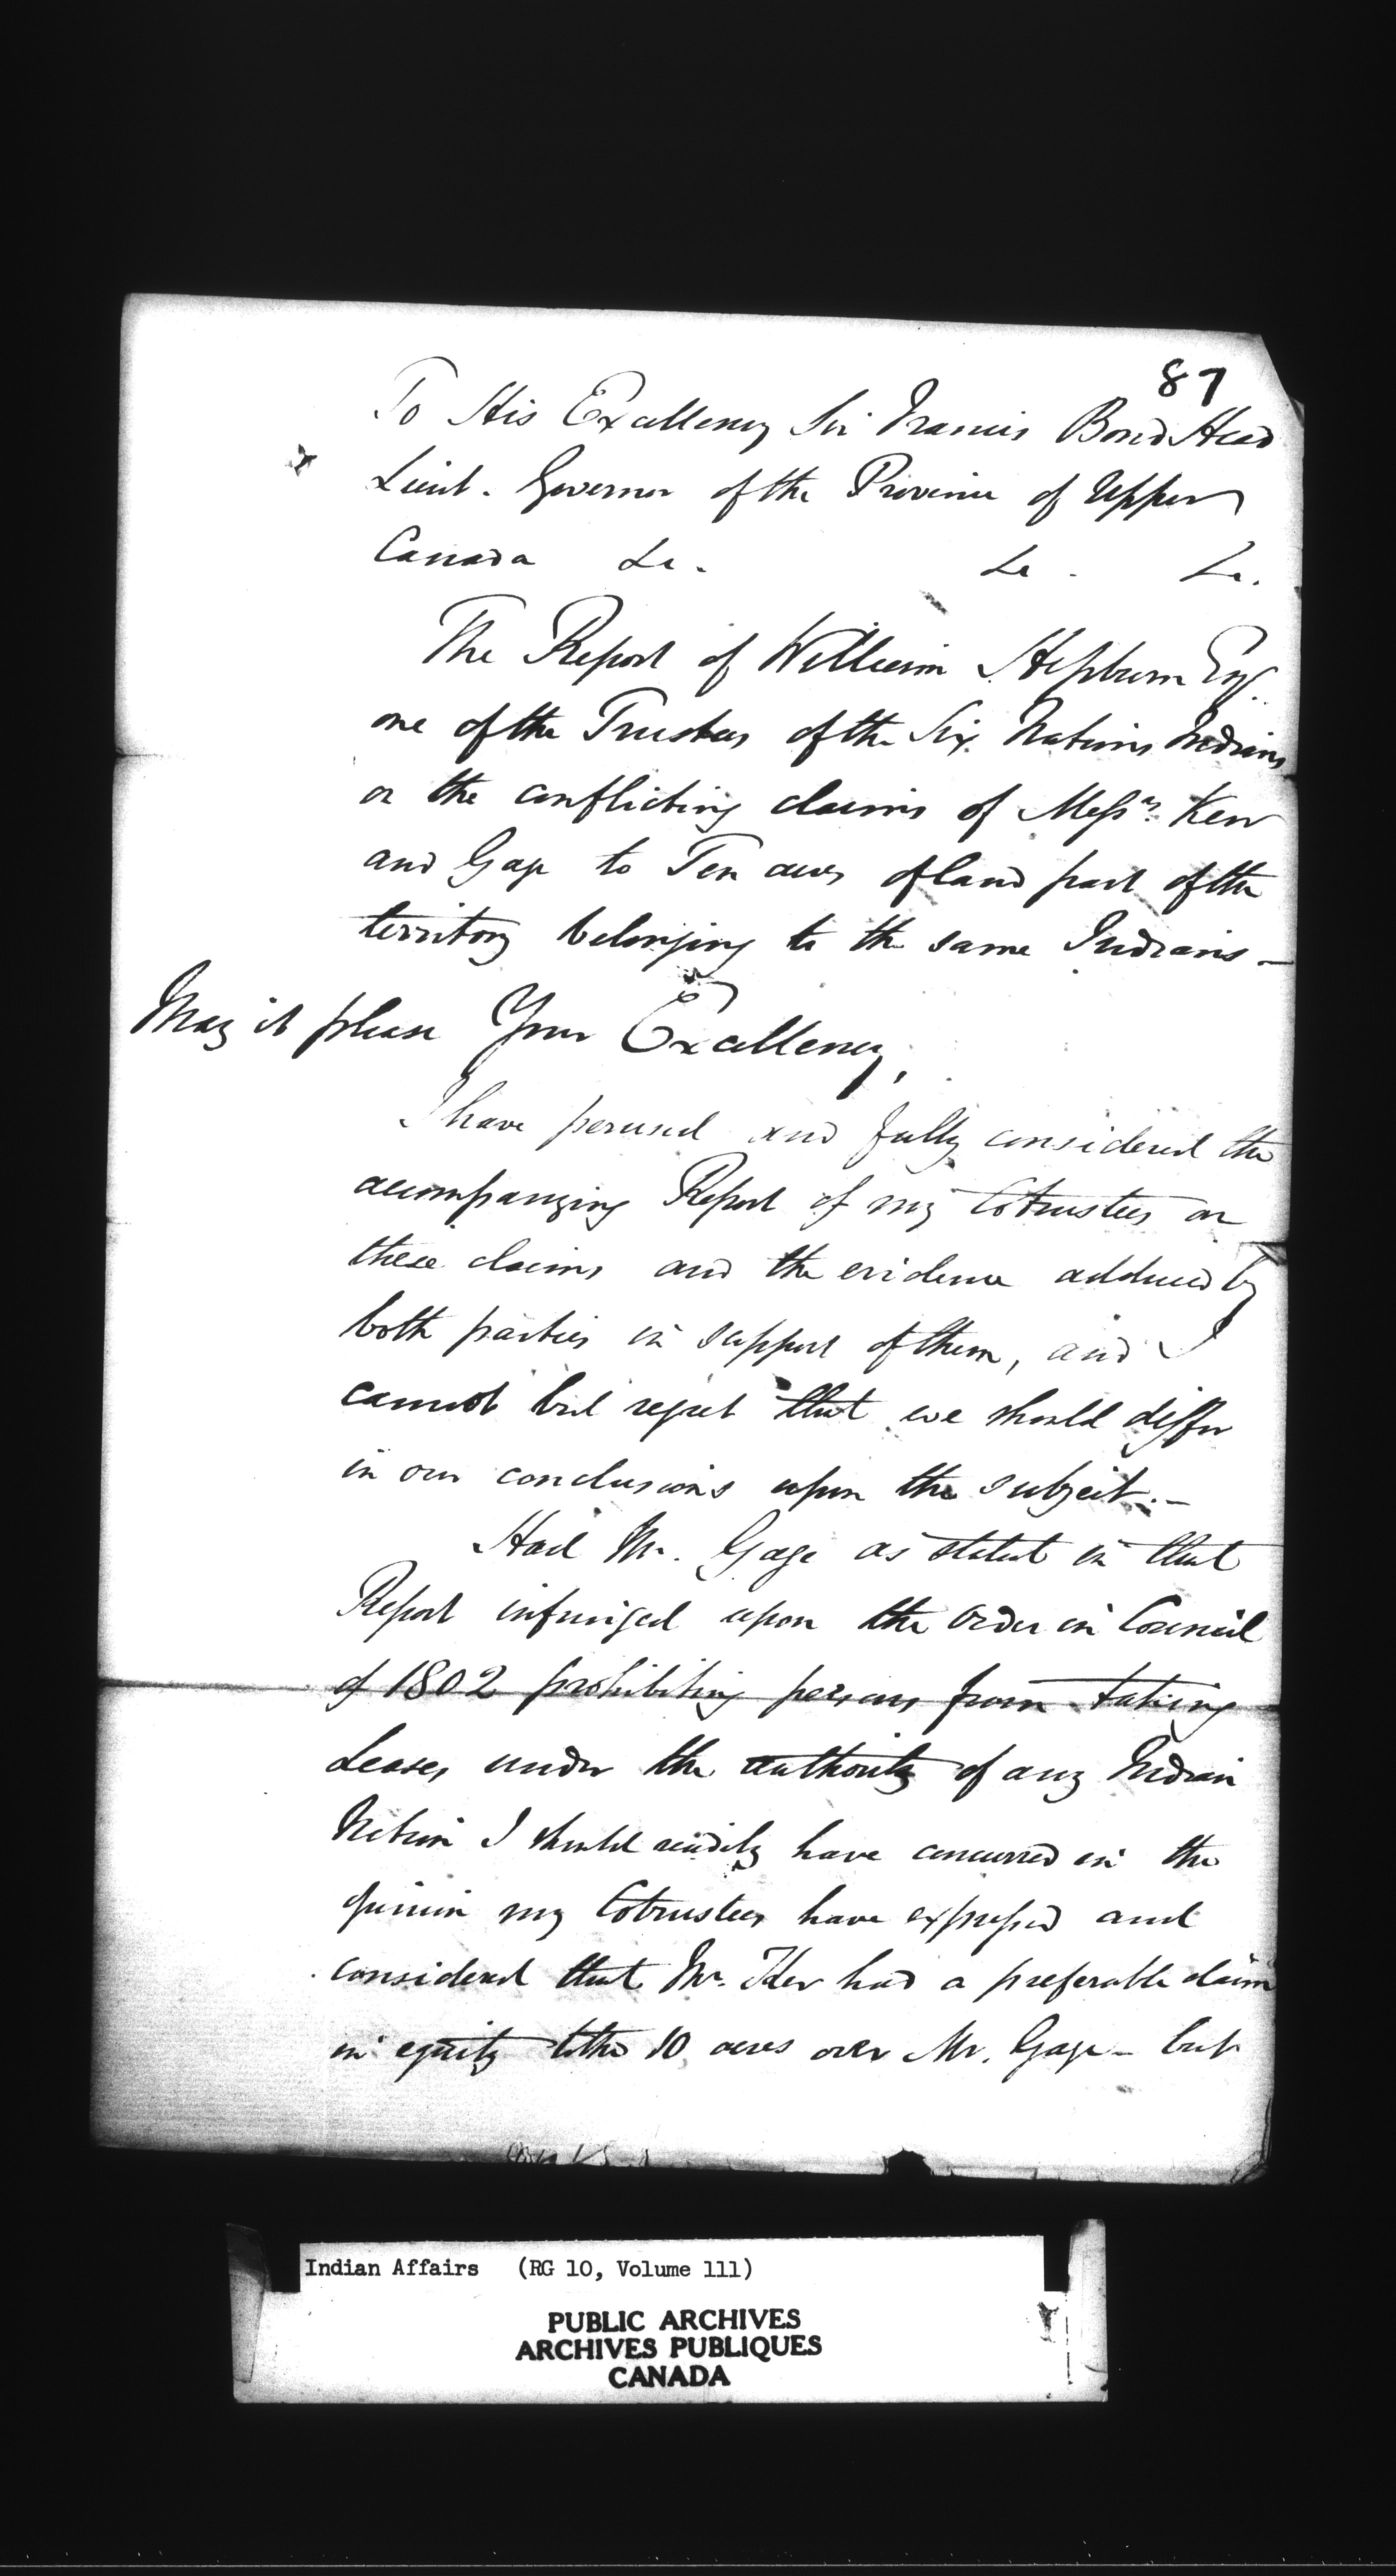 87
To His Excellency Sir Francis Bond Head
Lieut. Governor of the Province of Upper
Canada &c. &c. &c.
The Report of William Hepburn Esq.
one of the Trustees of the Six Nations Indians
on the conflicting claims of Messrs. Kerr
and Gage to Ten acres of land part of the
territory belonging to the same Indians —
May it please Your Excellency,
I have perused and fully considered the
accompanying Report of my Cotrustees on
these claims and the evidence adduced by
both parties in support of them, and I
cannot but regret that we should differ
in our conclusions upon the subject. —
Had Mr. Gage as stated in that
Report infringed upon the order in Council
of 1802 prohibiting persons from taking
Leases under the authority of any Indian
Nation I should readily have concurred in the
opinion my Cotrustees have expressed and
considered that Mr. Kerr had a preferable claim
in equity to the 10 acres over Mr. Gage — but
Indian Affairs (RG 10, Volume 111)
PUBLIC ARCHIVES
ARCHIVES PUBLIQUES
CANADA